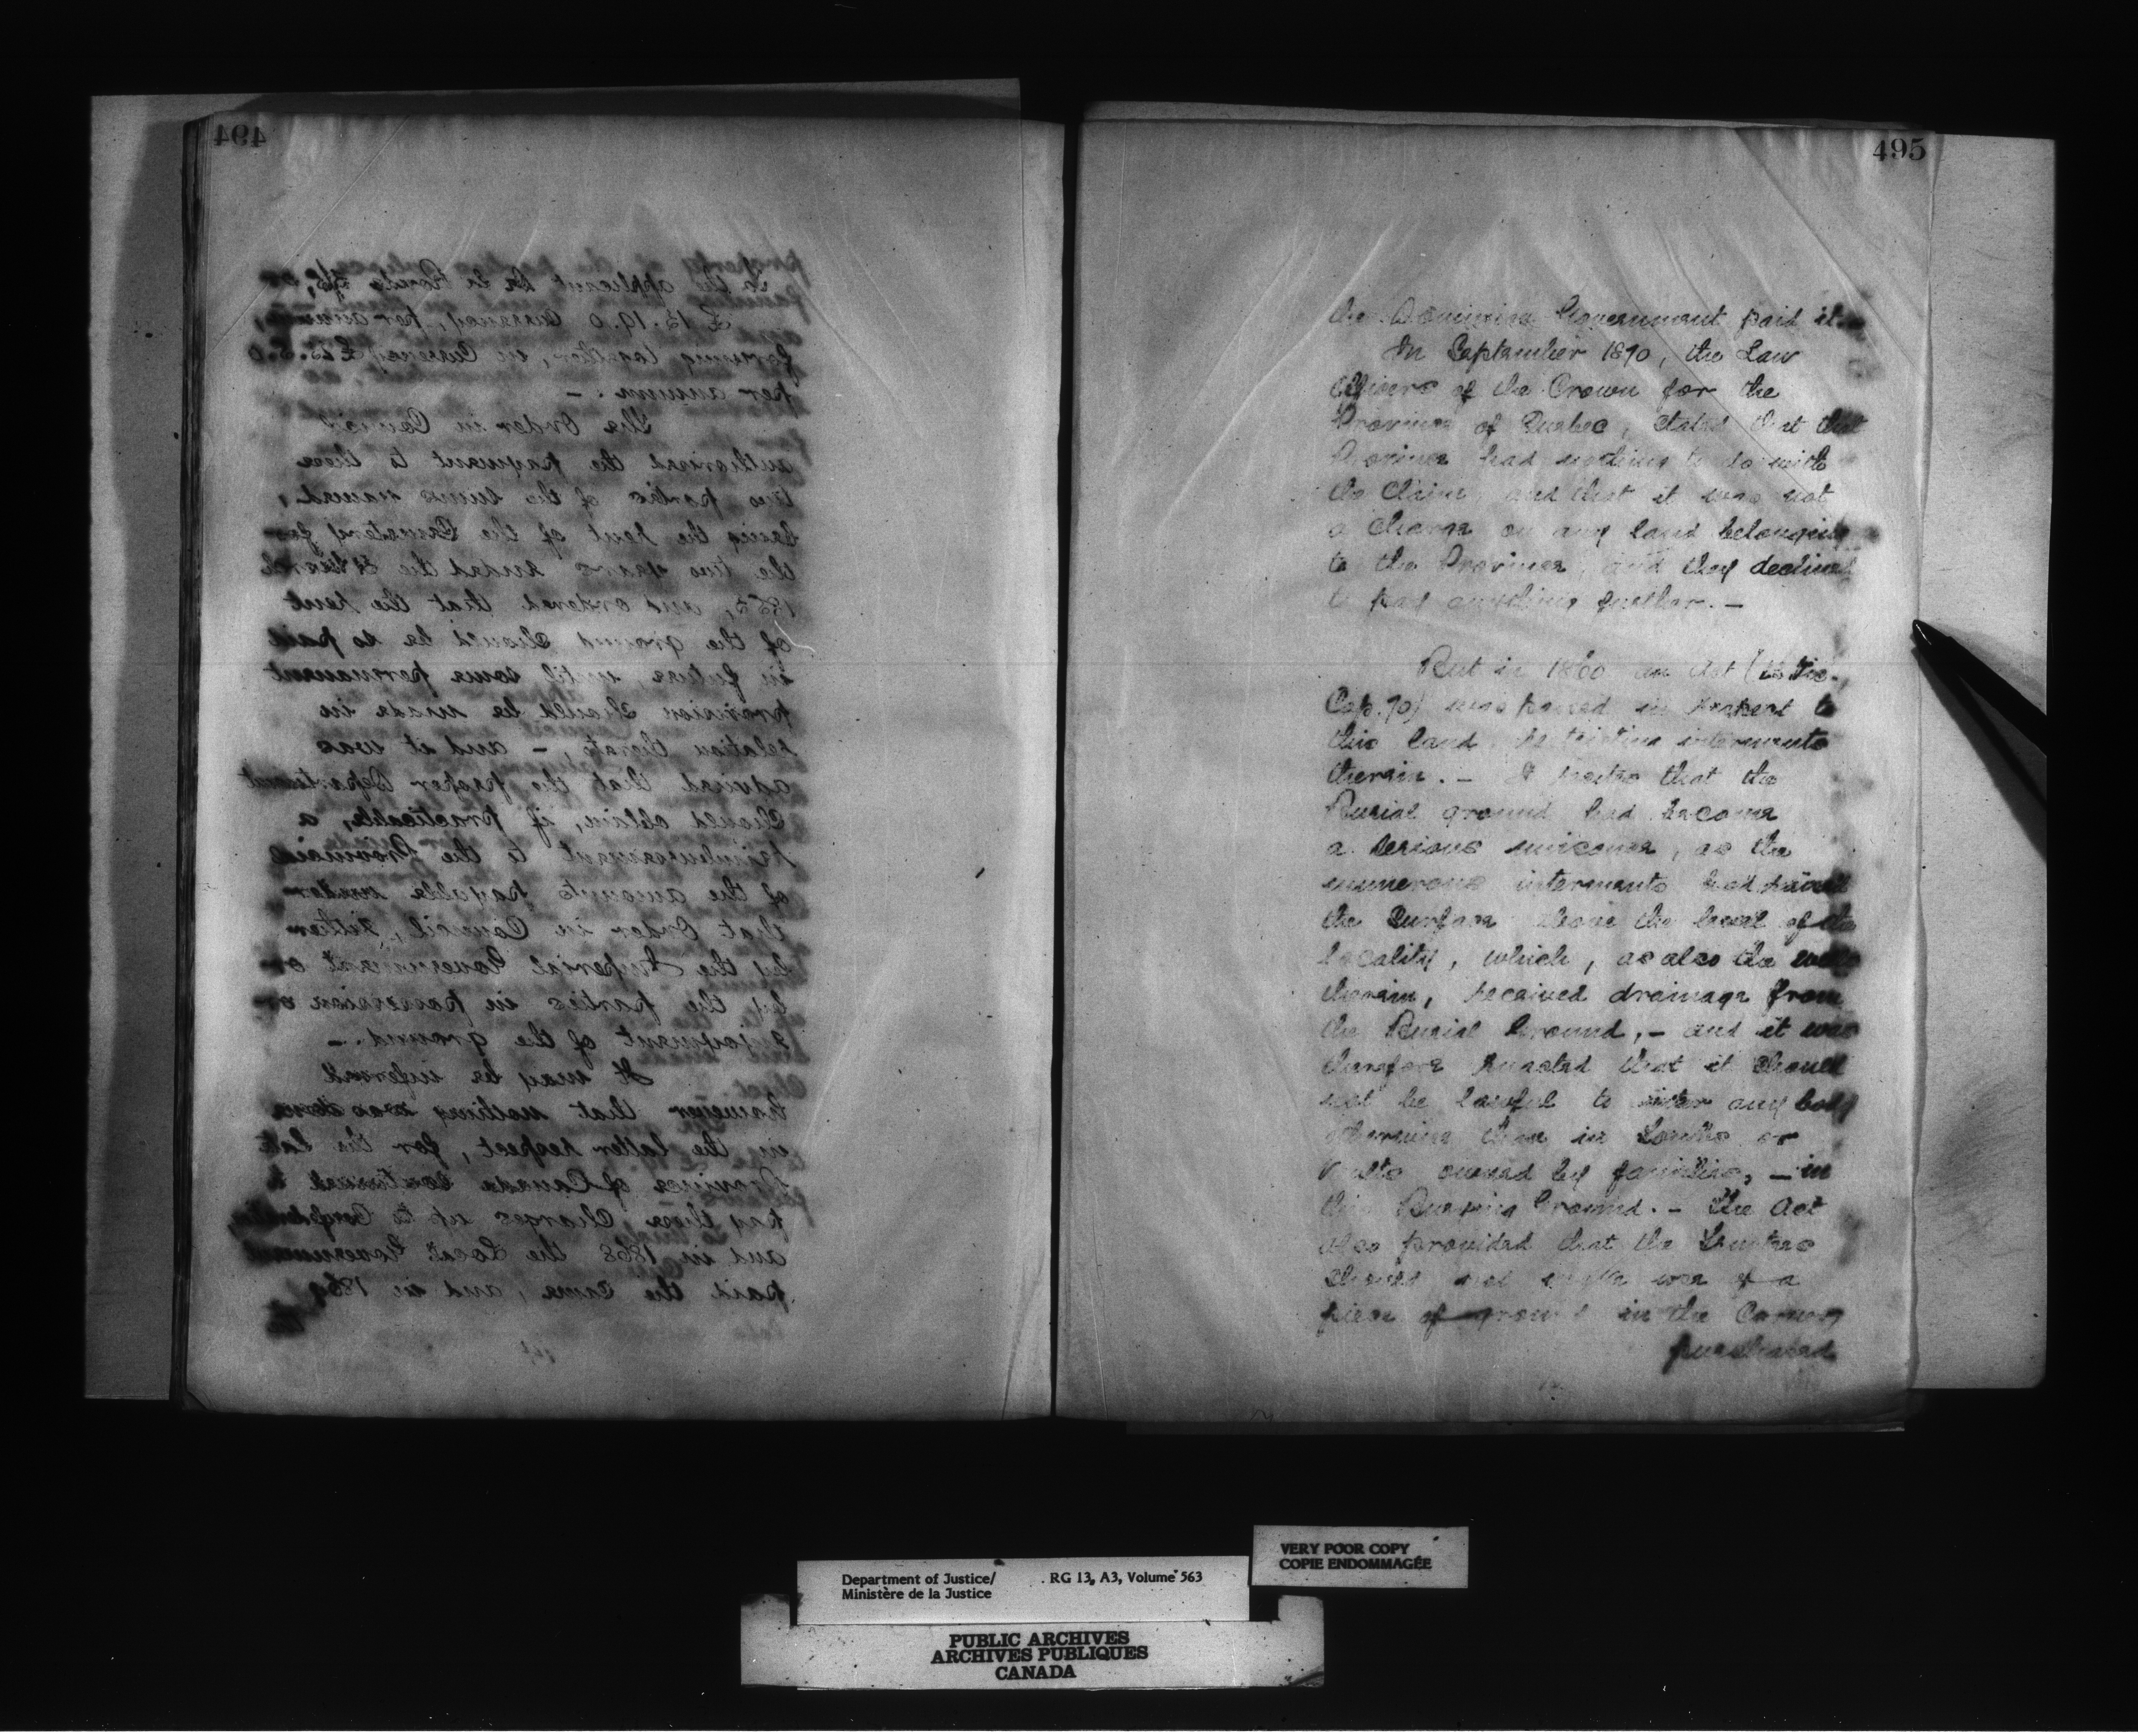 494
to the applicant be in Bonds
£ 13.19.0 Currency, per annum,
forming together, in Currency £
per annum. —
The Order in Council
authorised the payment to these
two parties of the sums named,
being the rent of the Cemetery for
the two years ended the March
186, and ordered that the rent
of the ground should be so paid
in future until some permanent
provision should be made in
relation thereto, — and it was
advised that the proper Department
should obtain, if practicable, a
reimbursement to the Province
of the amounts payable under
that Order in Council, either
by the Imperial Government or
by the parties in possession or
enjoyment of the ground. —
It may be inferred
however that nothing was done
in the latter respect, for the late
Province of Canada continued to
pay these charges up to Confederation
and in 1868 the Local Government
paid the same, and in 1869
the
495
the Dominion Government paid it.
In September 1870, the Law
Officers of the Crown for the
Province of Quebec, stated that that
Province had nothing to do with
the claim, and that it was not
a charge on any land belonging
to the Province, and they declined
to pay anything further. —
But in 1860 an Act (23 Vic.,
Cap. 70) was passed in respect to
this land, restricting interments
therein. — It recites that the
Burial ground had become
a serious nuisance, as the
numerous interments had raised
the surface above the level of the
locality, which, as also the wells
therein, received drainage from
the Burial Ground, — and it was
therefore enacted that it should
not be lawful to inter any body
otherwise than in tombs or
vaults owned by families, — in
this Burying Ground. — The Act
also provided that the Trustees
should not make use of a
piece of ground in the Corner
purchased
Department of Justice/ RG 13, A3, Volume 563
Ministère de la Justice
VERY POOR COPY
COPIE ENDOMMAGÉE
PUBLIC ARCHIVES
ARCHIVES PUBLIQUES
CANADA